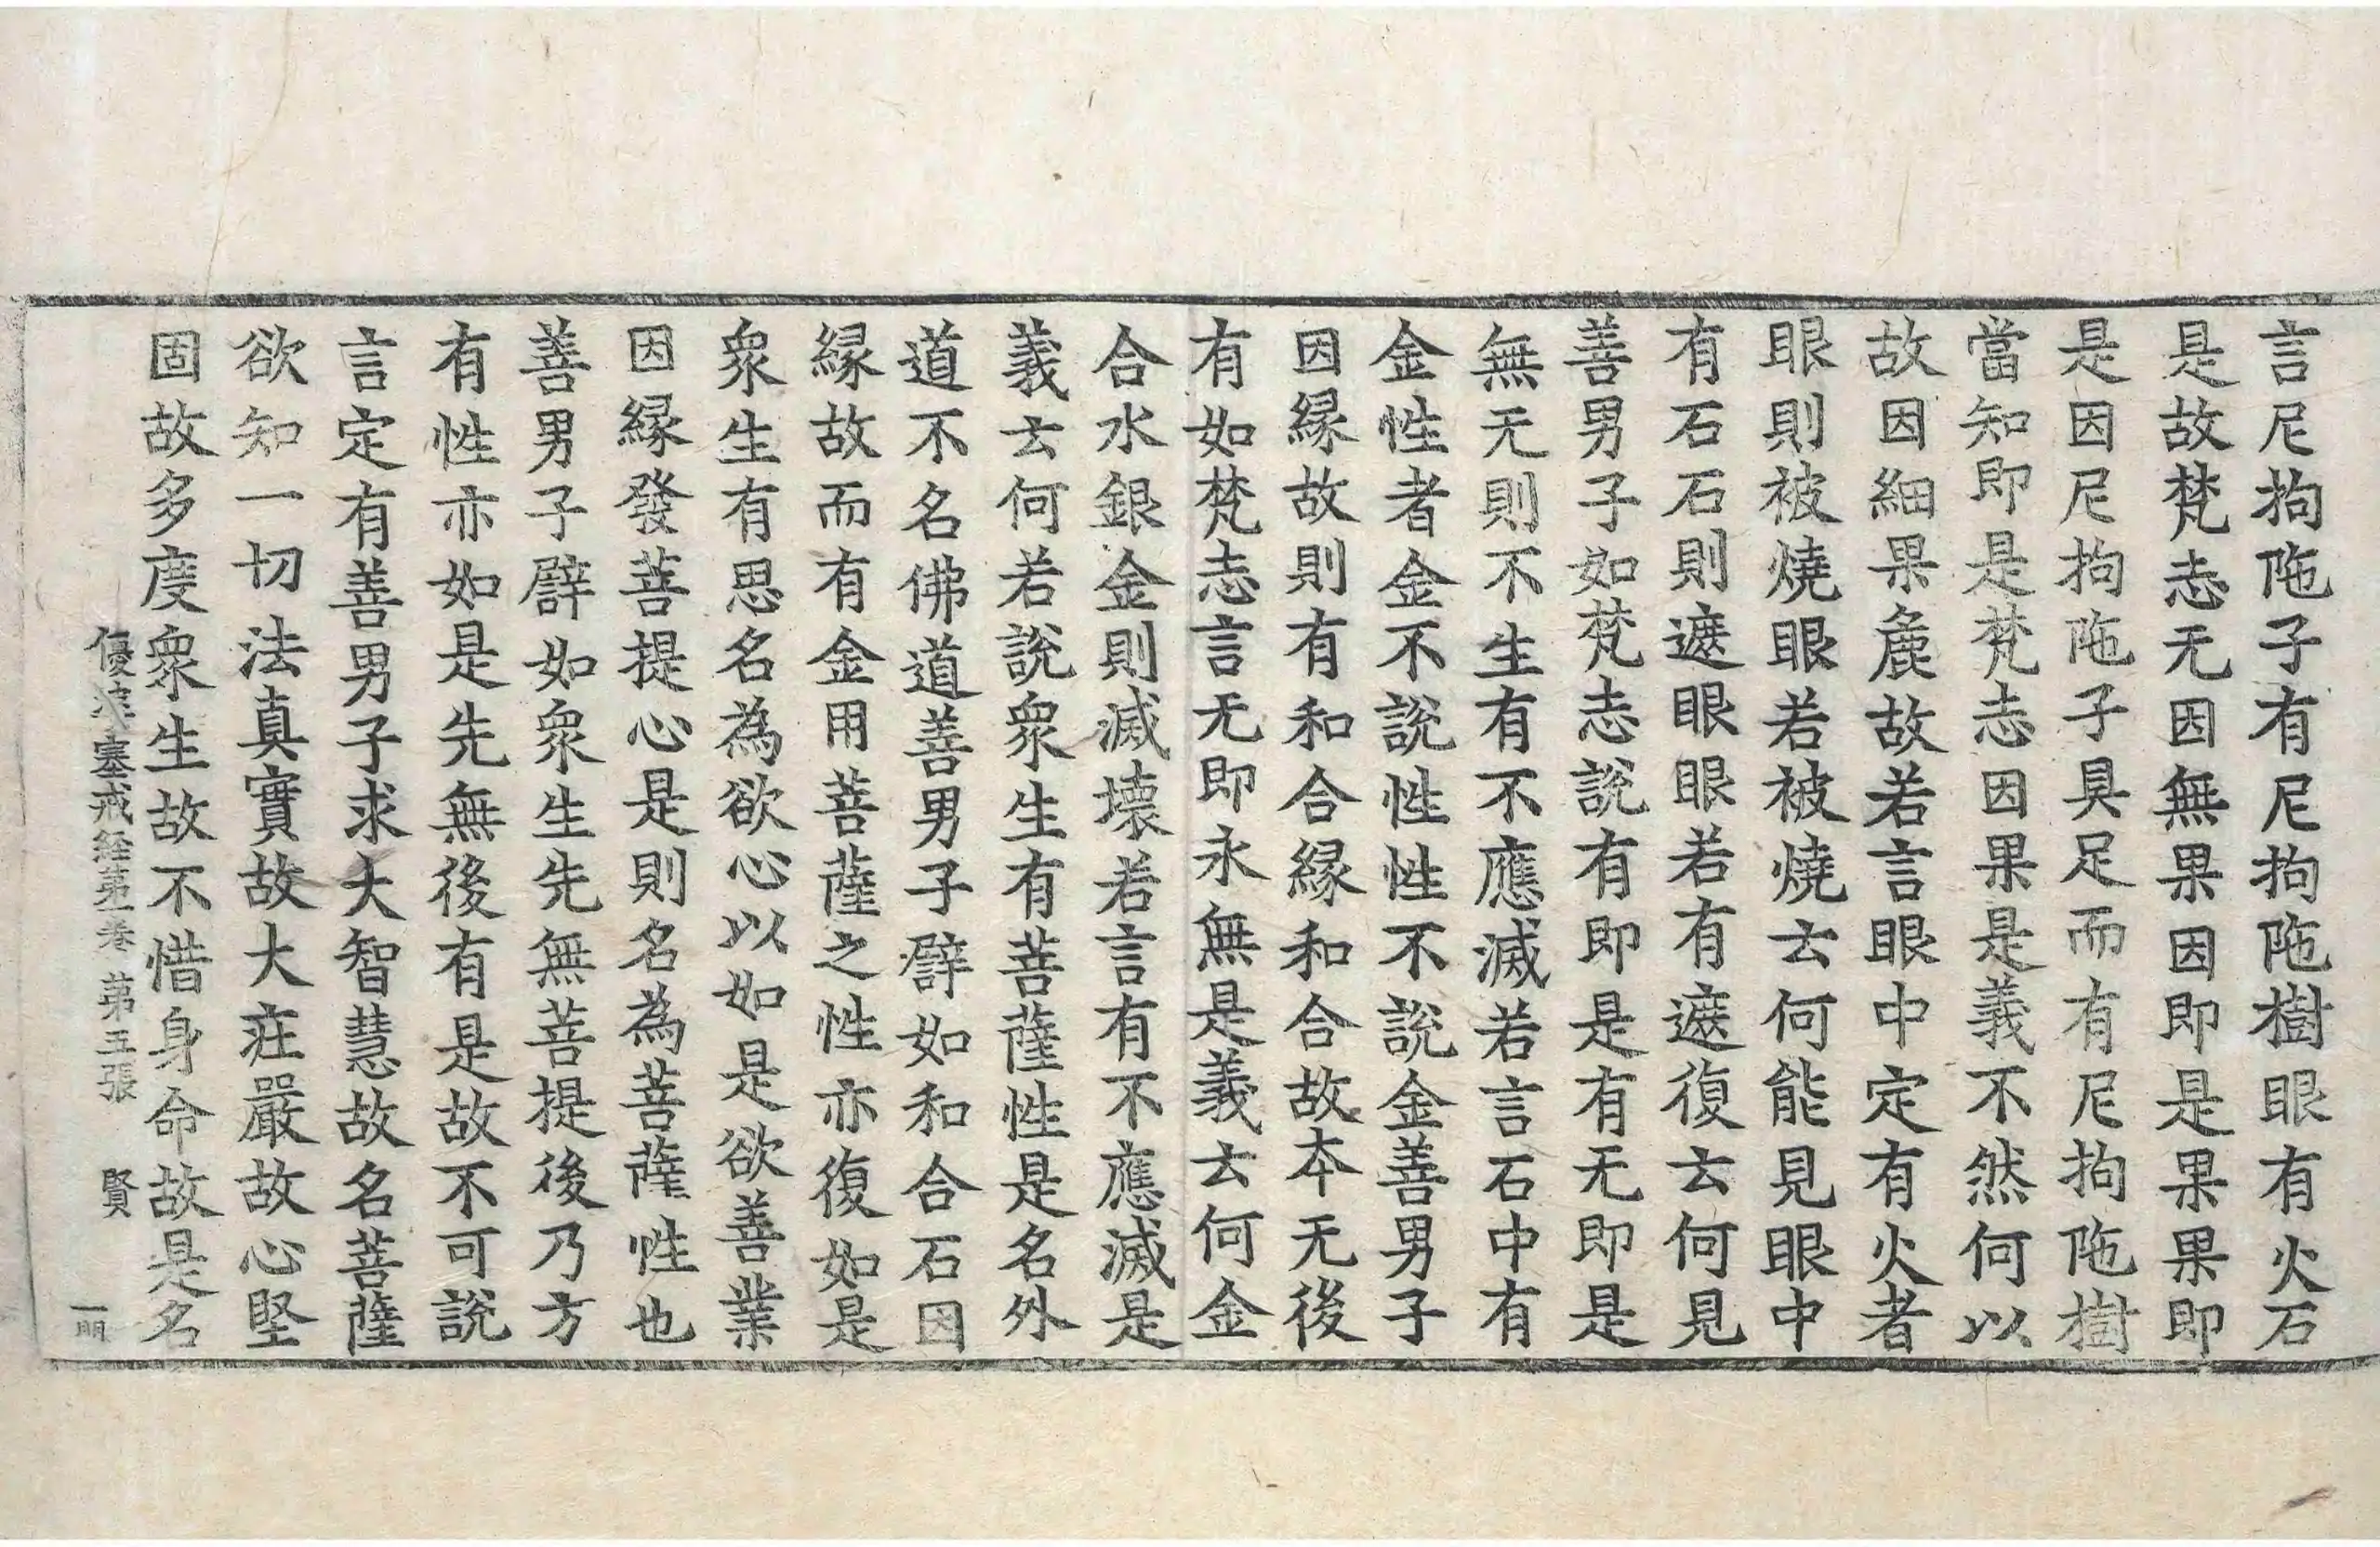 言尼拘陁子有尼拘陁樹眼有火石
是故梵志无因無果因即是果果即
是因尼拘陁子具足而有尼拘陁樹
當知即是梵志因果是義不然何以
故因細果麁故若言眼中定有火者
眼則被燒眼若被燒云何能見眼中
有石石則遮眼眼若有遮復云何見
善男子如梵志說有即是有无即是
無无則不生有不應滅若言石中有
金性者金不說性性不說金善男子
因縁故則有和合縁和合故本无後
有如梵志言无即永無是義云何金
合水銀金則滅壞若言有不應滅是
義云何若說衆生有菩薩性是名外
道不名佛道善男子譬如和合石因
縁故而有金用菩薩之性亦復如是
衆生有思名為欲心以如是欲善業
因縁發菩提心是則名為菩薩性也
善男子譬如衆生先無菩提後乃方
有性亦如是先無後有是故不可說
言定有善男子求大智慧故名菩薩
欲知一切法真實故大莊嚴故心堅
固故多度衆生故不惜身命故是名
優婆塞戒経第一卷 第五張 賢
一明